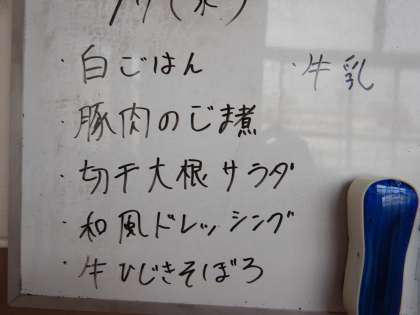 ・白ごはん ・牛乳
・豚肉のごま煮
・切干大根サラダ
・和風ドレッシング
・牛ひじきそぼろ